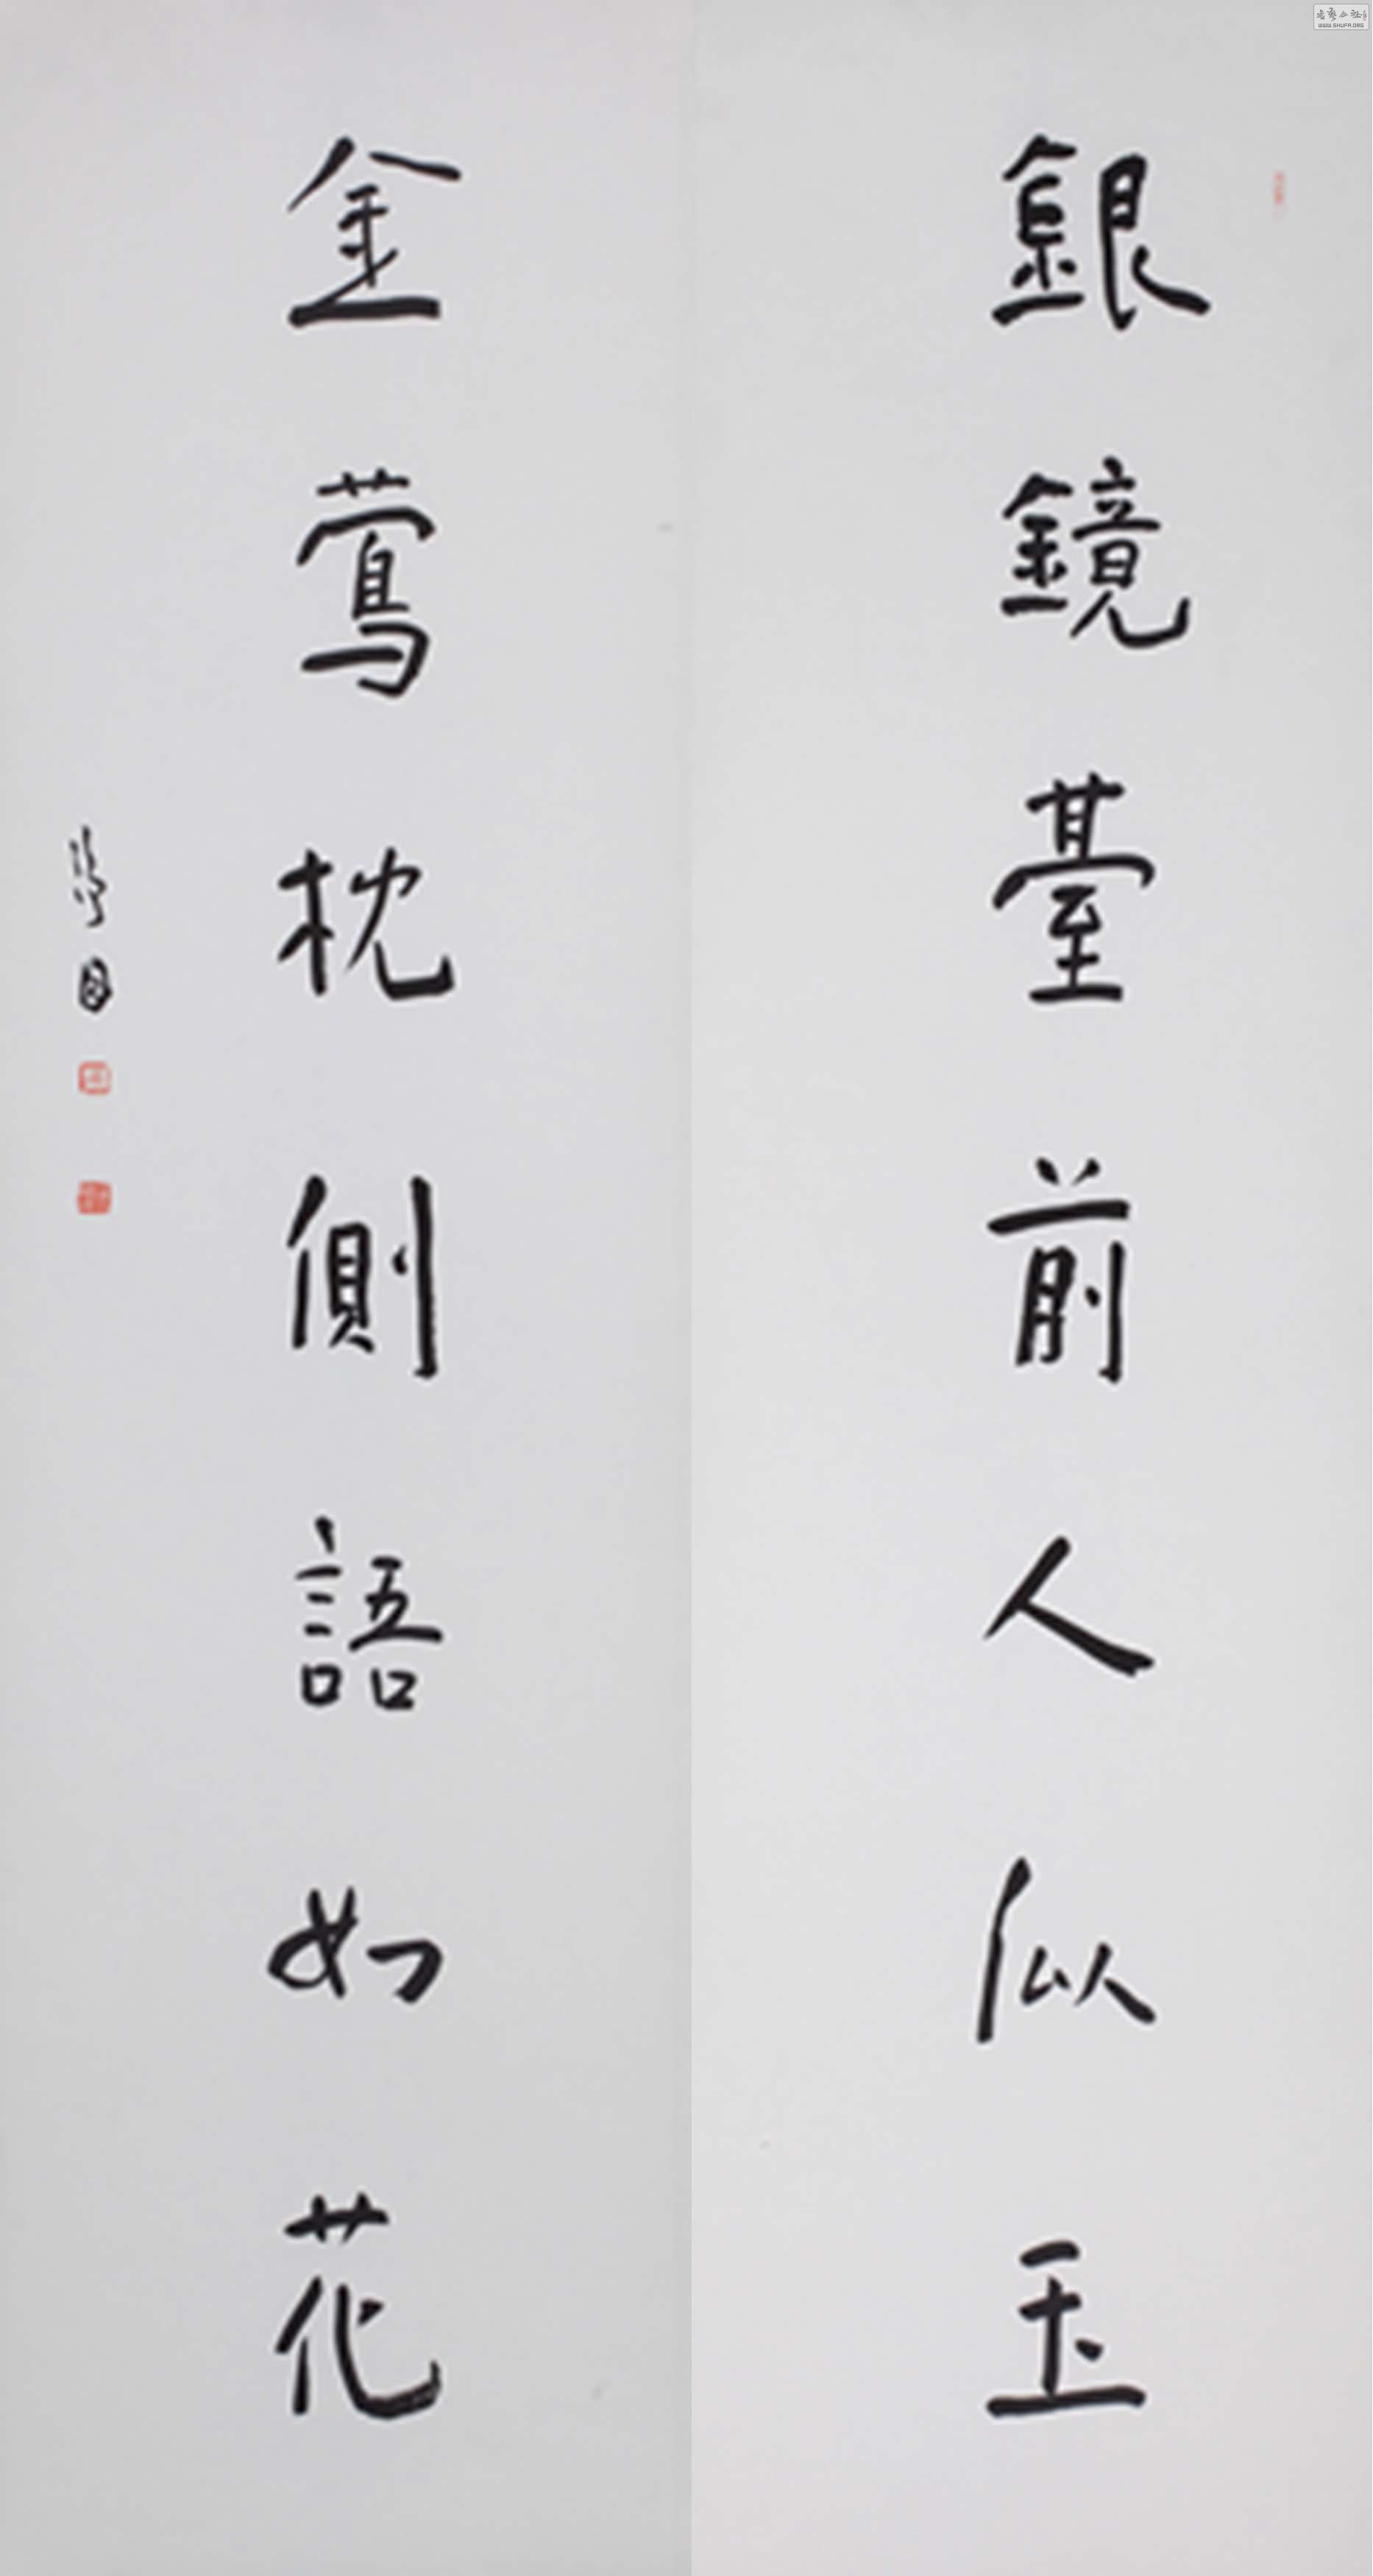 銀鏡臺前人似玉
金鶯枕側語如花
WWW.SHUFA.ORG